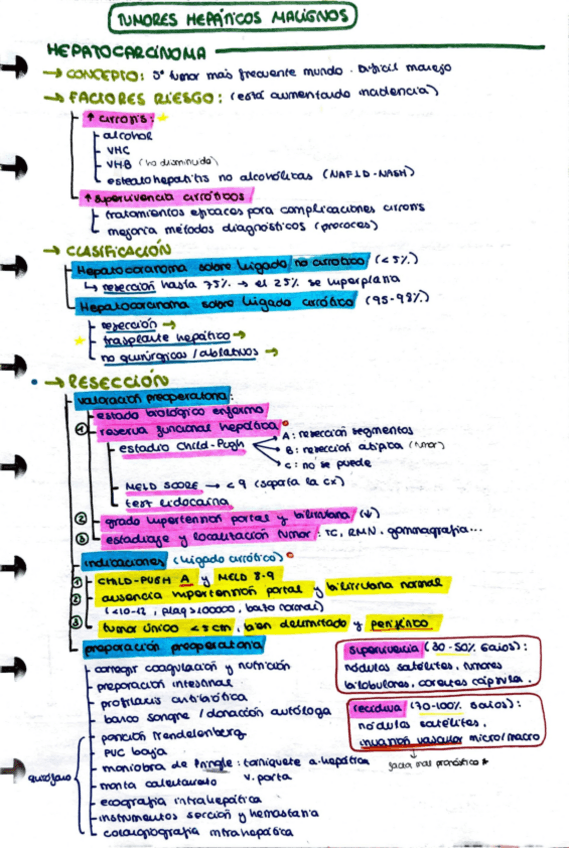 TUMORES HEPÁTICOS MALIGNOS
HEPATOCARCINOMA
→ CONCEPTO: 5º tumor más frecuente mundo. Difícil manejo
→ FACTORES RIESGO: (está aumentando incidencia)
↑ cirrosis:
alcohol
VHC
VHB (ha disminuido)
esteatohepatitis no alcohólicas (NAFLD-NASH)
↑ supervivencia cirróticos
tratamientos eficaces para complicaciones cirrosis
mejoría métodos diagnósticos (precoces)
→ CLASIFICACIÓN
Hepatocarcinoma sobre hígado no cirrótico (<5%)
↳ resección hasta 75% → el 25% se hiperplasia
Hepatocarcinoma sobre hígado cirrótico (95-98%)
resección →
trasplante hepático →
no quirúrgicos / ablativos →
→ RESECCIÓN
valoración preoperatoria:
estado biológico enfermo
① reserva funcional hepática
estadio Child-Pugh
A: resección segmentos
B: resección atípica (tumor)
C: no se puede
MELD SCORE → <9 (soporta la cx)
test lidocaína
② grado hipertensión portal y bilirrubina (↓)
③ estadiaje y localización tumor: TC, RMN, gammagrafía...
indicaciones (hígado cirrótico)
① CHILD-PUGH A y MELD 8-9
② ausencia hipertensión portal y bilirrubina normal
(<10-12, plaq >100000, bazo normal)
③ tumor único <5cm, bien delimitado y periférico
preparación preoperatoria
corregir coagulación y nutrición
preparación intestinal
profilaxis antibiótica
banco sangre / donación autóloga
quirófano
posición Trendelenberg
PVC baja
maniobra de Pringle: torniquete a. hepática
v. porta
manta calentando
ecografía intrahepática
instrumentos sección y hemostasia
colangiografía intrahepática
supervivencia (30-50% 5años):
nódulos satélites, tumores
bilobulares, carentes cápsula.
recidiva (70-100% 5años):
nódulos satélites,
invasión vascular micro/macro
factor mal pronóstico *